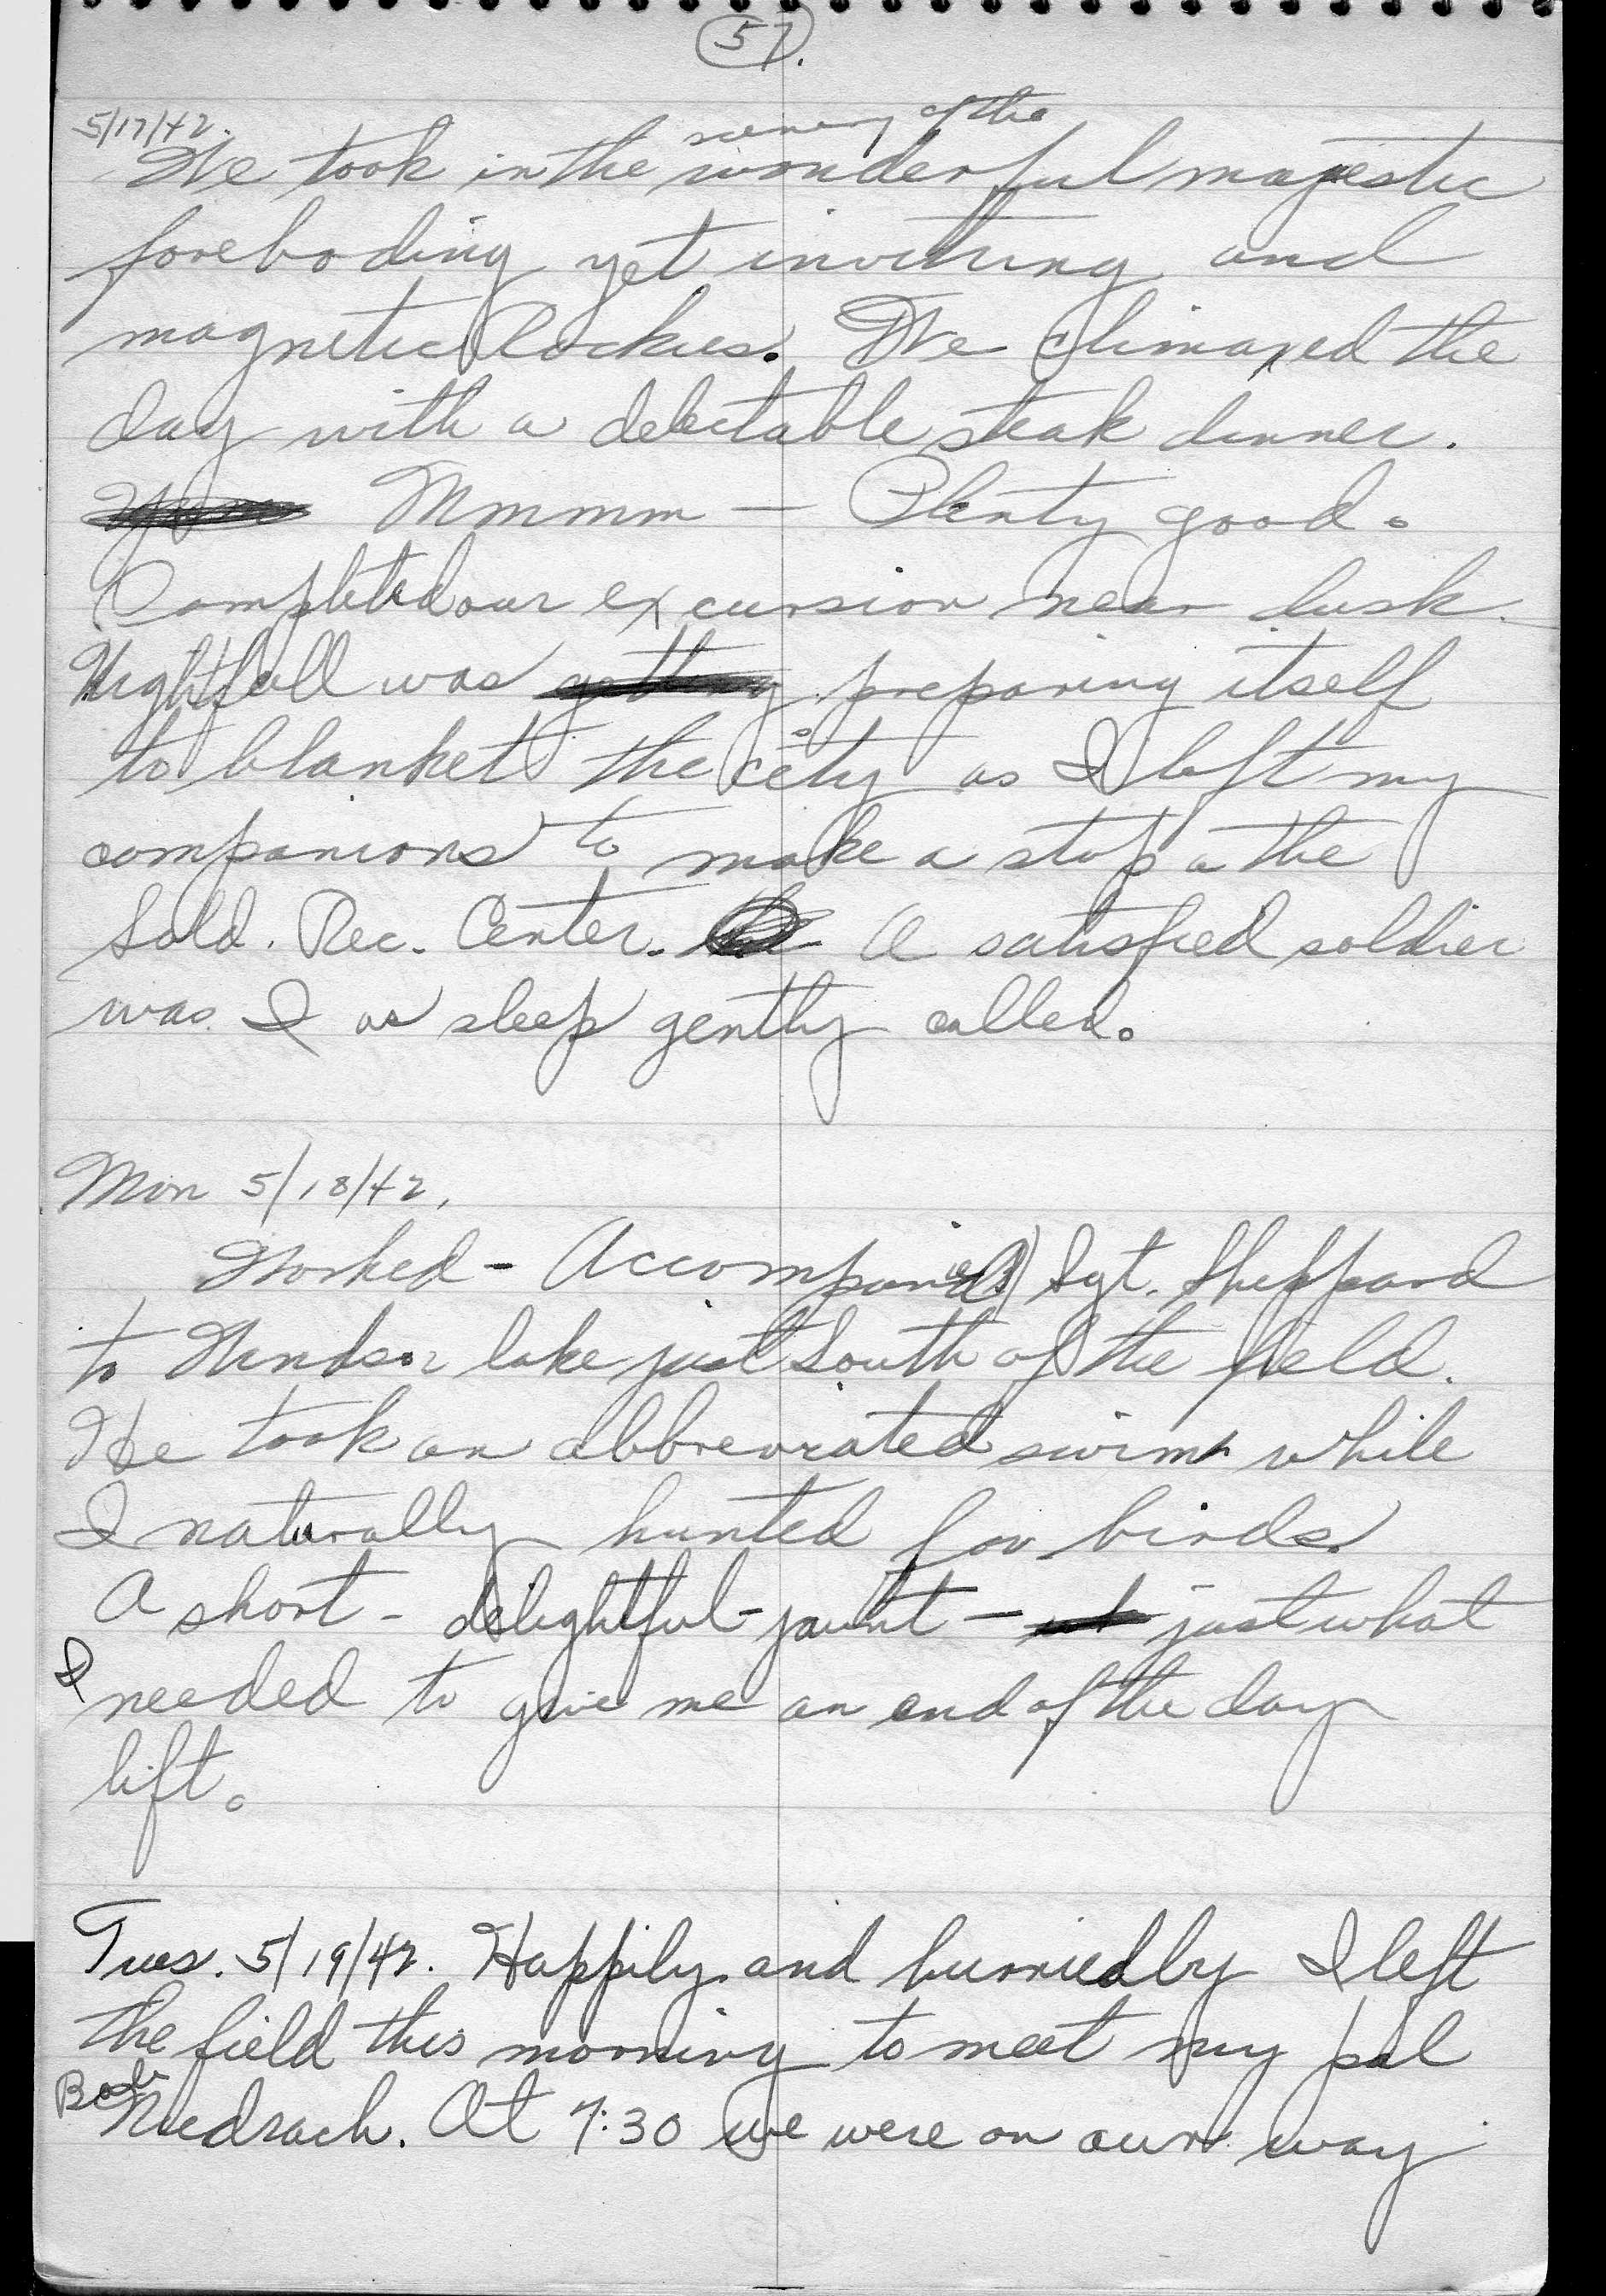 57.
5/17/42.
scenery of the
We took in the wonderful majestic
foreboding yet inviting and
magnetic Rockies. We climaxed the
day with a delectable steak dinner.
Mmmmm — Plenty good.
Completed our excursion near dusk.
Nightfall was getting preparing itself
to blanket the city as I left my
companions to make a stop a the
Sold. Rec. Center. A satisfied soldier
was I as sleep gently called.
Mon 5/18/42.
Worked - Accompanied Sgt. Sheppard
to Windsor lake just South of the field.
He took an abbreviated swim while
I naturally hunted for birds.
A short - delightful - jaunt — just what
I needed to give me an end of the day
lift.
Tues. 5/19/42. Happily and hurriedly I left
the field this morning to meet my pal
Bob Niedrach. At 7:30 we were on our way